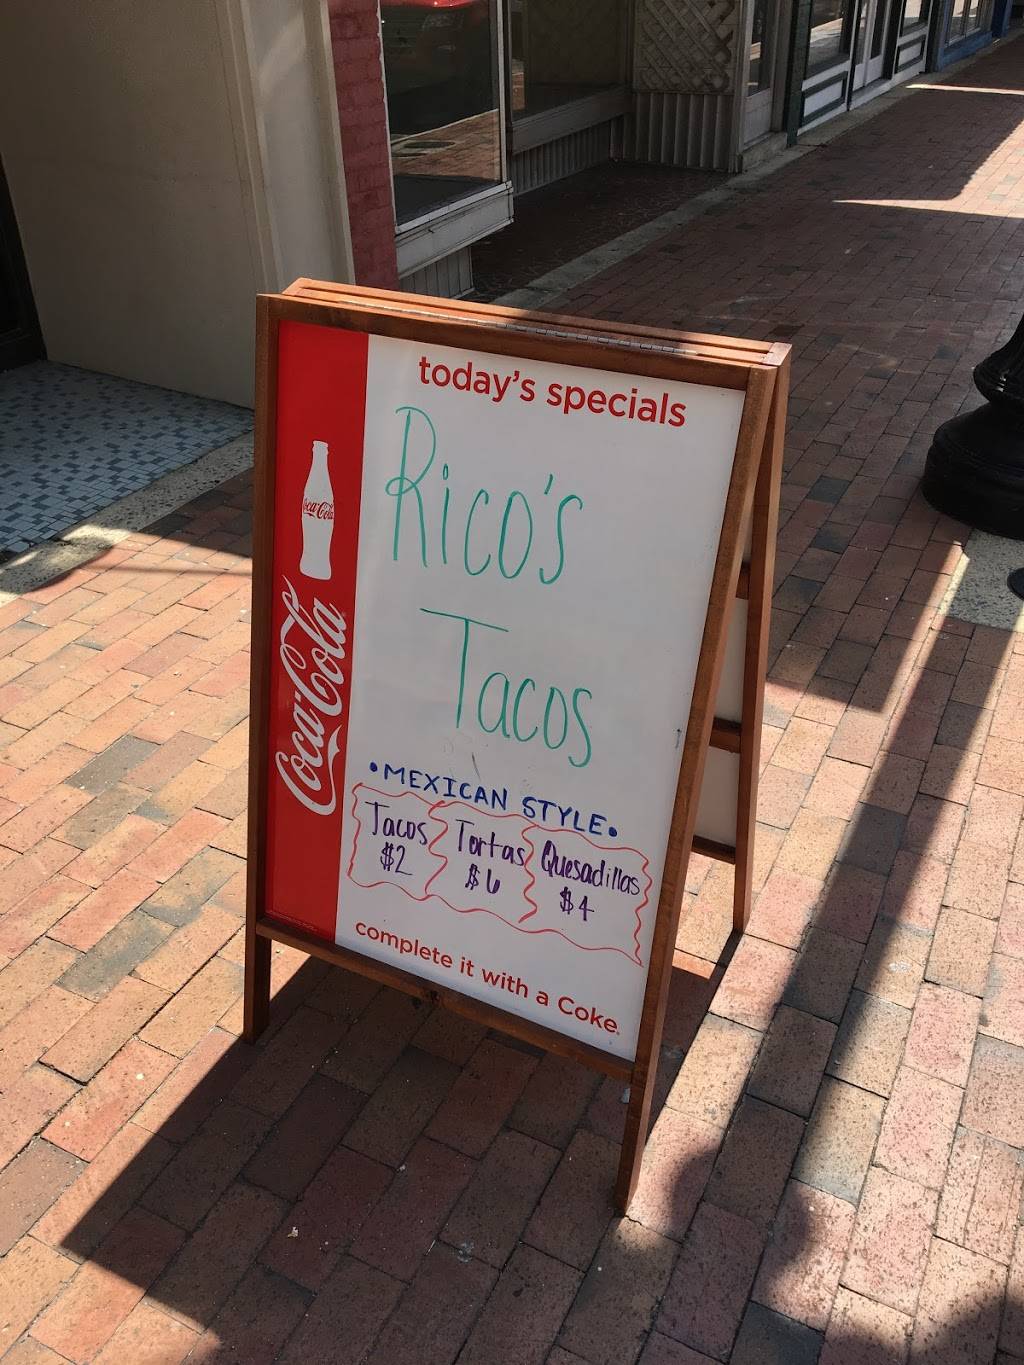 today's specials
Rico's
Tacos
•MEXICAN STYLE•
Tacos Tortas Quesadillas
$2 $6 $4
complete it with a Coke
Coca-Cola
Coca-Cola